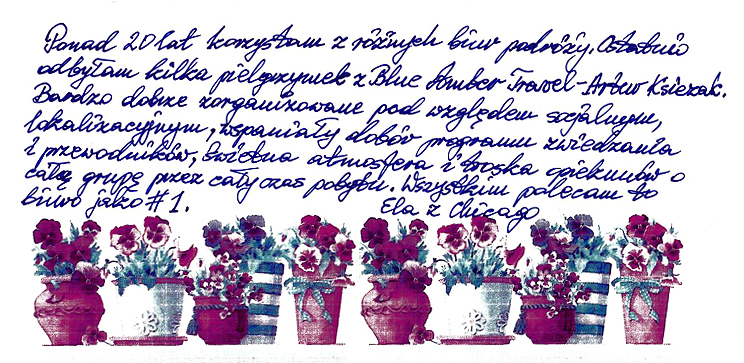 Ponad 20 lat korzystam z różnych biur podróży. Ostatnio
odbyłam kilka pielgrzymek z Blue Amber Travel - Artur Ksiezak.
Bardzo dobrze zorganizowane pod względem socjalnym,
lokalizacyjnym, wspaniały dobór programu zwiedzania
i przewodników, świetna atmosfera i troska opiekunów o
całą grupę przez cały czas pobytu. Wszystkim polecam to
biuro jako #1.
Ela z Chicago